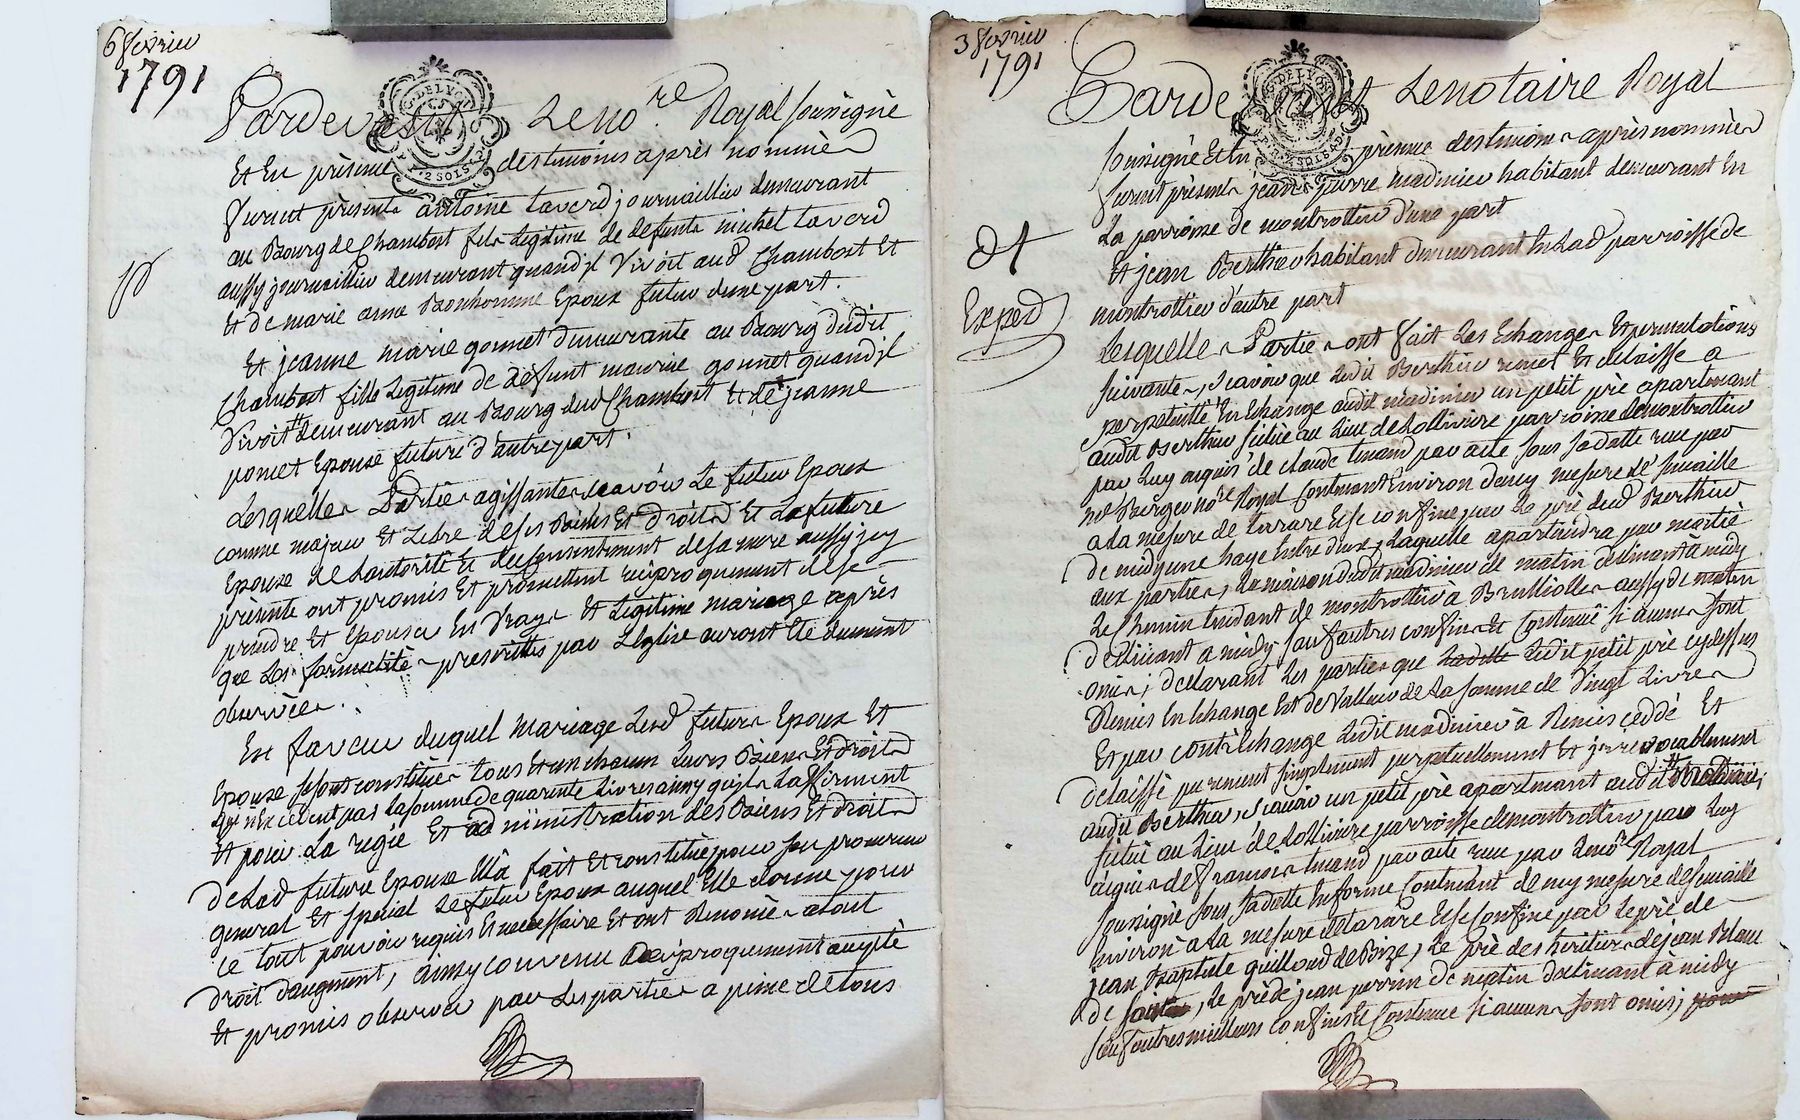 6 fevrier
1791
G. DE LYON
P. 2 SOLS
Pardevant Le no.re Royal soussigné
Et En présence des temoins après nommés
furent présents antoine Laverd journaillier demeurant
au Bourg de Chambost fils Legitime de defunt michel Laverd
aussy journaillier demeurant quand jl Vivoit aud Chambost Et
Et de marie anne Bonhomme Epoux futur d'une part.
Et jeanne marie gonnet demeurante au Bourg dudit
Chambost fille Legitime de defunt maurice gonnet quand jl
Vivoit demeurant au Bourg dud Chambost Et de jeanne
poncet Epouse future d'autre part.
Lesquelles Parties agissantes scavoir Le futur Epoux
comme majeur Et Libre de ses Biens Et droits Et La future
Epouse de Lautorité Et du consentement de sa mere aussy jcy
présente ont promis Et promettent réciproquement de se
prendre Et Epouser En Vray Et Legitime mariage après
que Les formalités prescrittes par L'Eglise auront Eté dument
observées.
En faveur duquel mariage Lesd futurs Epoux Et
Epouse se sont constitués tous Et un chacun Leurs Biens Et droits
qui n'Excedent pas La somme de quarante Livres ainsy qu'jls L'affirment
Et pour La regie Et administration des Biens Et droits
de Lad future Epouse Elle a fait Et constitué pour son procureur
general Et special Le futur Epoux auquel Elle donne pour
ce tout pouvoir requis Et necessaire Et ont Renoncé a tout
droit d'augment, ainsy convenu Réciproquement accepté
Et promis observer par Les parties a peine de tous
3 fevrier
1791
G. DE LYON
2 SOLS
Exped
Pardevant Le notaire Royal
soussigné Et En présence des temoins après nommés
furent présents jean pierre madinier habitant demeurant En
La parroisse de montrottier d'une part
Et jean Berthier habitant demeurant En Lad parroisse de
montrottier d'autre part
Lesquelles Parties ont fait Les Echanges Et permutations
suivantes, scavoir que Ledit Berthier remet Et delaisse a
perpetuité En Echange audit madinier un petit pré apartenant
audit Berthier situé au Lieu de Lollivière parroisse de montrottier
par Luy acquis de claude tenand par acte sous sa datte reçu par
me Bourg no.re Royal Contenant Environ demy mesure de semaille
a La mesure de tarare Et se confine par Le pré dud Berthier
de midy une haye Entre deux, Laquelle apartiendra par moitié
aux parties, La maison dudit madinier de matin declinant à midy
Le Chemin tendant de montrottier à Brullioles aussy de matin
declinant a midy sauf autres confins Et Contenue si aucuns sont
omis; declarant Les parties que Ledit petit pré cy dessus
Remis En Echange Est de Valleur de La somme de Vingt Livres
Et par contréchange Ledit madinier à Remis, ceddé Et
delaissé purement simplement perpetuellement Et jrrevocablement
audit Berthier, scavoir un petit pré apartenant audit madinier,
situé au Lieu de Lollivière parroisse de montrottier par Luy
acquis de françois tenand par acte reçu par Le no.re Royal
soussigné sous sa datte En forme Contenant demy mesure de semaille
Environ a La mesure de tarare Et se Confine par Le pré de
jean Baptiste guilloud de Bize, Le pré des heritiers de jean Blanc
de soir, Le pré de jean perrin de matin declinant à midy
sauf autres meilleurs confins Et Contenue si aucuns sont omis;